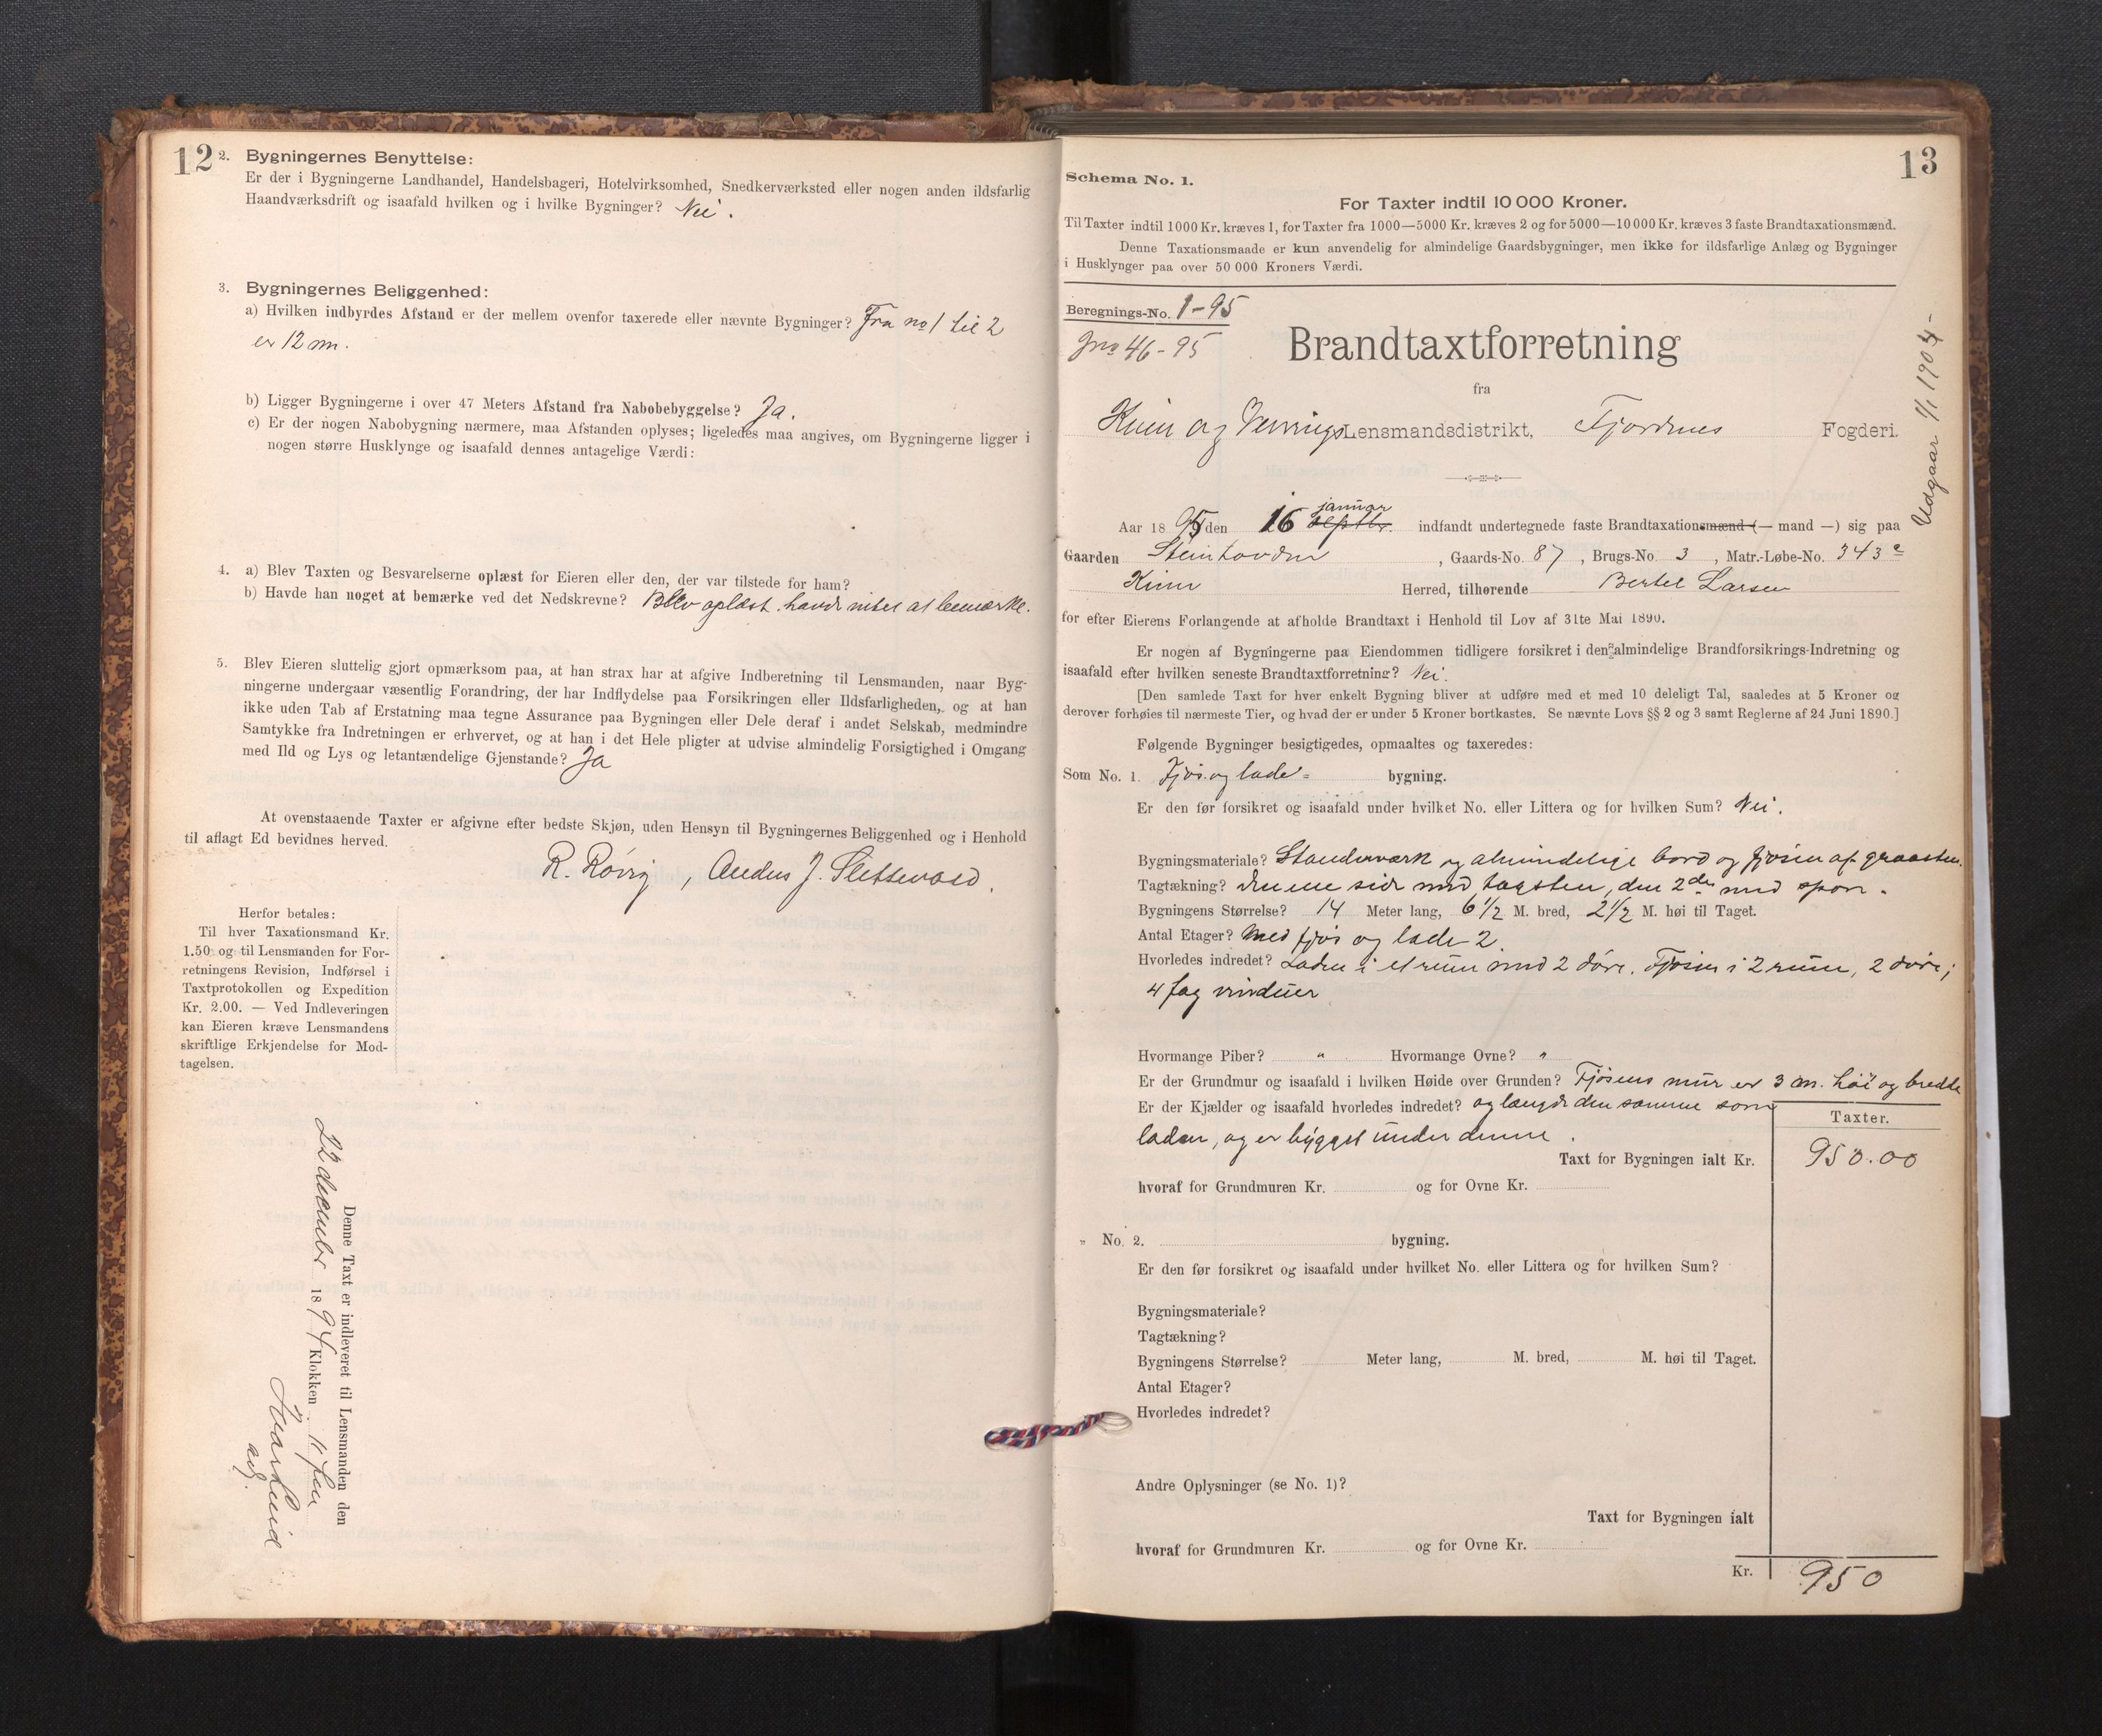 12
2. Bygningernes Benyttelse:
Er der i Bygningerne Landhandel, Handelsbageri, Hotelvirksomhed, Snedkerværksted eller nogen anden ildsfarlig
Haandværksdrift og isaafald hvilken og i hvilke Bygninger? Nei.
3. Bygningernes Beliggenhed:
a) Hvilken indbyrdes Afstand er der mellem ovenfor taxerede eller nævnte Bygninger? Fra no 1 til 2
er 12 m.
b) Ligger Bygningerne i over 47 Meters Afstand fra Nabobebyggelse? Ja.
c) Er der nogen Nabobygning nærmere, maa Afstanden oplyses; ligeledes maa angives, om Bygningerne ligger i
nogen større Husklynge og isaafald dennes antagelige Værdi:
4. a) Blev Taxten og Besvarelserne oplæst for Eieren eller den, der var tilstede for ham?
b) Havde han noget at bemærke ved det Nedskrevne? Blev oplæst. havde intet at bemærke.
5. Blev Eieren sluttelig gjort opmærksom paa, at han strax har at afgive Indberetning til Lensmanden, naar Byg-
ningerne undergaar væsentlig Forandring, der har Indflydelse paa Forsikringen eller Ildsfarligheden, og at han
ikke uden Tab af Erstatning maa tegne Assurance paa Bygningen eller Dele deraf i andet Selskab, medmindre
Samtykke fra Indretningen er erhvervet, og at han i det Hele pligter at udvise almindelig Forsigtighed i Omgang
med Ild og Lys og letantændelige Gjenstande? Ja
At ovenstaaende Taxter er afgivne efter bedste Skjøn, uden Hensyn til Bygningernes Beliggenhed og i Henhold
til aflagt Ed bevidnes herved.
R. Røvig, Anders J. Slettevold.
Herfor betales:
Til hver Taxationsmand Kr.
1.50 og til Lensmanden for For-
retningens Revision, Indførsel i
Taxtprotokollen og Expedition
Kr. 2.00. — Ved Indleveringen
kan Eieren kræve Lensmandens
skriftlige Erkjendelse for Mod-
tagelsen.
Denne Taxt er indleveret til Lensmanden den
22 december 1894 Klokken 11 fm
13
Schema No. 1.
For Taxter indtil 10 000 Kroner.
Til Taxter indtil 1000 Kr. kræves 1, for Taxter fra 1000—5000 Kr. kræves 2 og for 5000—10 000 Kr. kræves 3 faste Brandtaxationsmænd.
Denne Taxationsmaade er kun anvendelig for almindelige Gaardsbygninger, men ikke for ildsfarlige Anlæg og Bygninger
i Husklynger paa over 50 000 Kroners Værdi.
Beregnings-No. 1-95
Jno 46-95
Brandtaxtforretning
fra
Kinn og Vevrings Lensmandsdistrikt, Fjordenes Fogderi.
Udgaar 1/1 1904-
januar
Aar 1895 den 16 septbr. indfandt undertegnede faste Brandtaxationsmænd (— mand —) sig paa
Gaarden Steinhovden, Gaards-No. 87, Brugs-No. 3, Matr.-Løbe-No. 343 e
Kinn Herred, tilhørende Bertel Larsen
for efter Eierens Forlangende at afholde Brandtaxt i Henhold til Lov af 31te Mai 1890.
Er nogen af Bygningerne paa Eiendommen tidligere forsikret i den almindelige Brandforsikrings-Indretning og
isaafald efter hvilken seneste Brandtaxtforretning? Nei.
[Den samlede Taxt for hver enkelt Bygning bliver at udføre med et med 10 deleligt Tal, saaledes at 5 Kroner og
derover forhøies til nærmeste Tier, og hvad der er under 5 Kroner bortkastes. Se nævnte Lovs §§ 2 og 3 samt Reglerne af 24 Juni 1890.]
Følgende Bygninger besigtigedes, opmaaltes og taxeredes:
Som No. 1. Fjøs og lade= bygning.
Er den før forsikret og isaafald under hvilket No. eller Littera og for hvilken Sum? Nei.
Bygningsmateriale? Standerværk og almindelige bord og fjøsen af graasten.
Tagtækning? den ene side med tagsten, den 2den med spon.
Bygningens Størrelse? 14 Meter lang, 6 1/2 M. bred, 2 1/2 M. høi til Taget.
Antal Etager? Med fjøs og lade 2.
Hvorledes indredet? Laden i et rum med 2 døre. Fjøsen i 2 rum, 2 døre;
4 fag vinduer
Hvormange Piber? " Hvormange Ovne? "
Er der Grundmur og isaafald i hvilken Høide over Grunden? Fjøsens mur er 3 m. høi og bredde
Er der Kjælder og isaafald hvorledes indredet? og længde den samme som
laden, og er bygget under denne.
Taxter.
Taxt for Bygningen ialt Kr. 950.00
hvoraf for Grundmuren Kr. og for Ovne Kr.
„ No. 2. bygning.
Er den før forsikret og isaafald under hvilket No. eller Littera og for hvilken Sum?
Bygningsmateriale?
Tagtækning?
Bygningens Størrelse? Meter lang, M. bred, M. høi til Taget.
Antal Etager?
Hvorledes indredet?
Andre Oplysninger (se No. 1)?
Taxt for Bygningen ialt
hvoraf for Grundmuren Kr. og for Ovne Kr.
Kr. 950